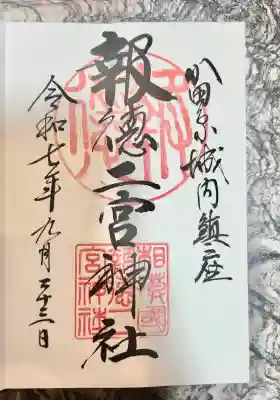 小田原城内鎮座
報徳二宮神社
令和七年九月二十三日
相模國
報德二
宮神社